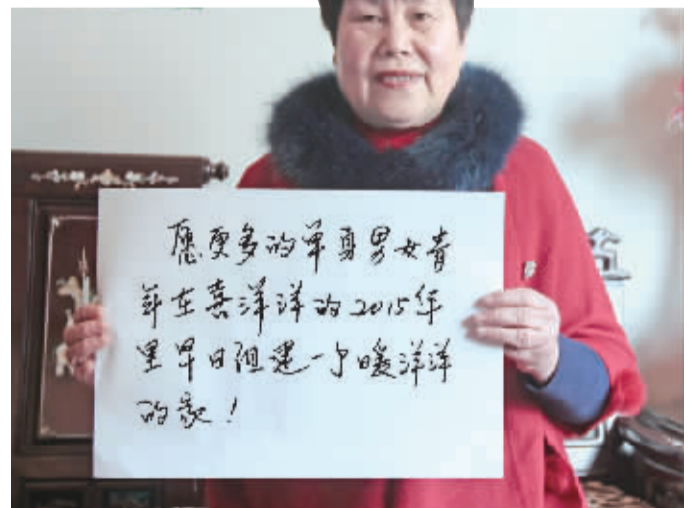 愿更多的单身男女青
年在喜洋洋的2015年
里早日组建一个暖洋洋
的家！